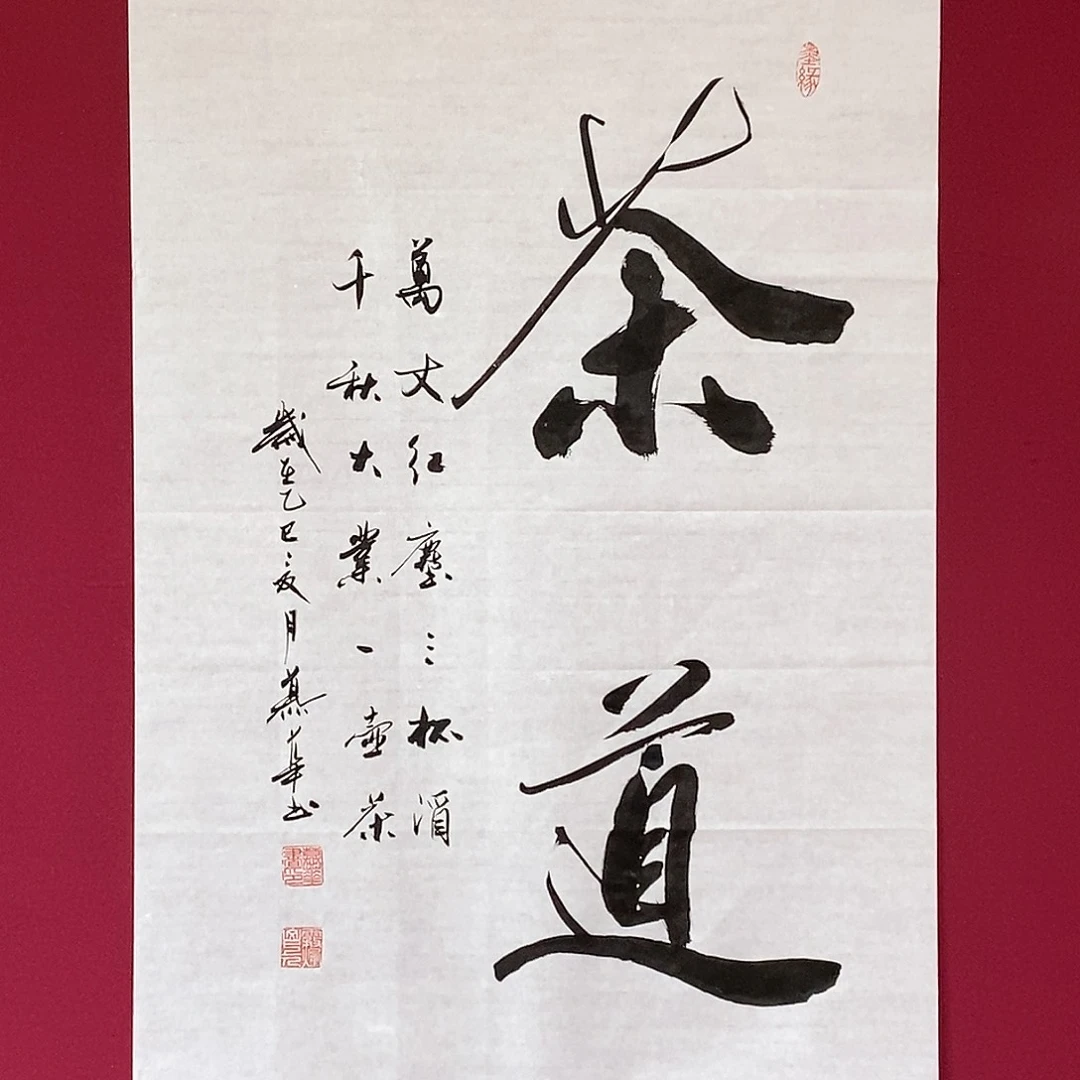 墨緣
茶道
萬丈紅塵三杯酒
千秋大業一壺茶
歲在乙巳夏月慕華书